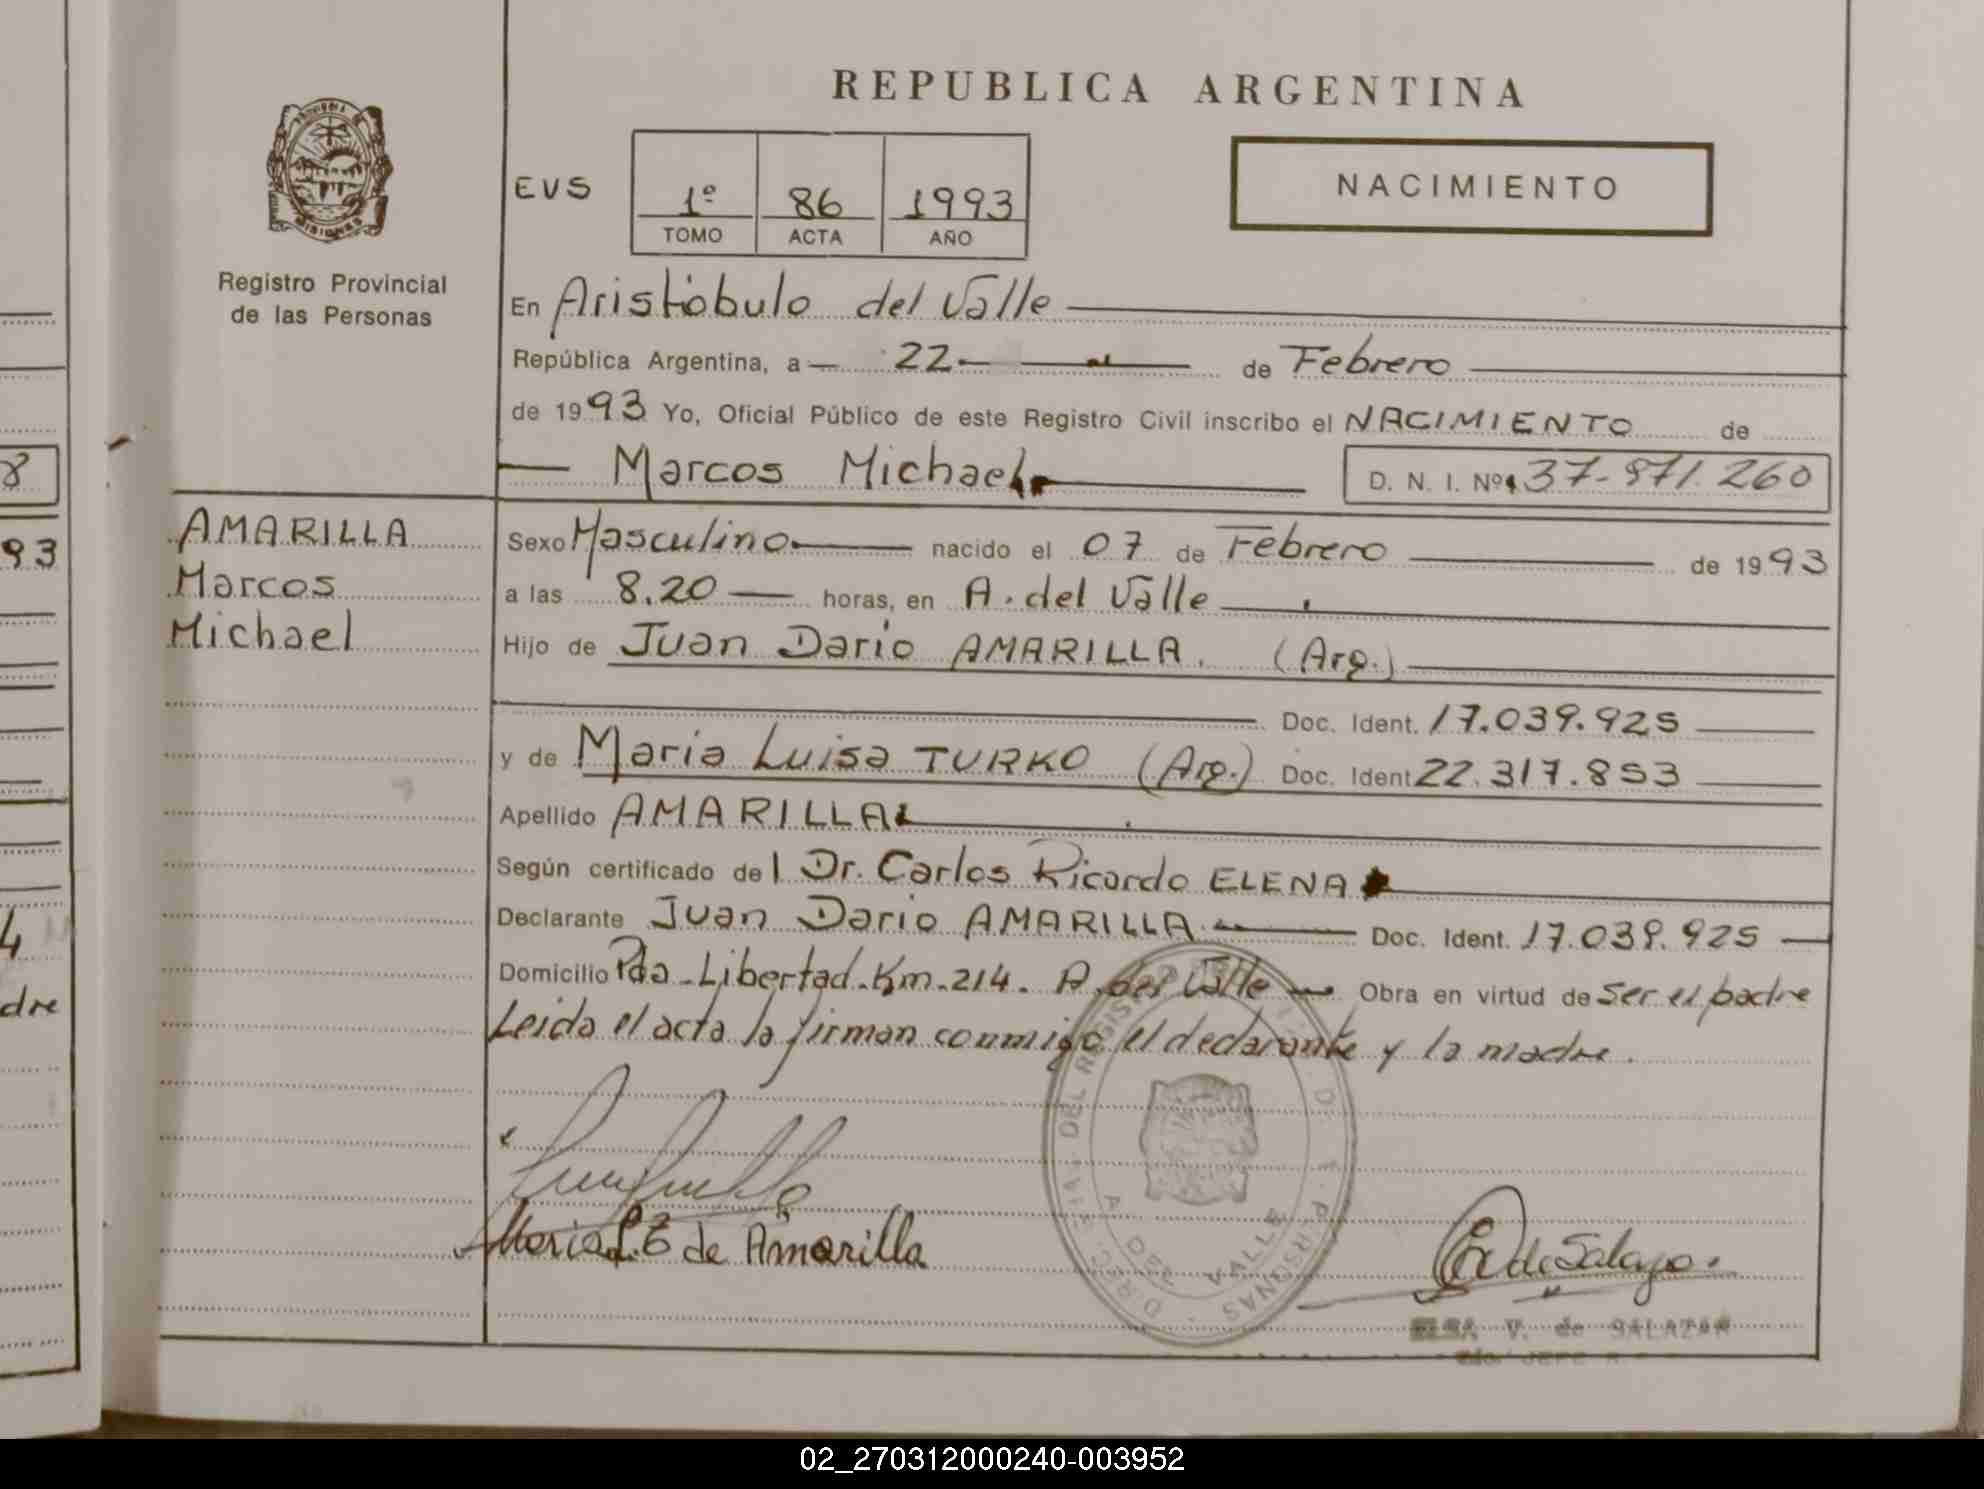 REPUBLICA ARGENTINA
NACIMIENTO
EVS
1º 86 1993
TOMO ACTA AÑO
Registro Provincial
de las Personas
En Aristóbulo del Valle
República Argentina, a 22 de Febrero
de 1993 Yo, Oficial Público de este Registro Civil inscribo el NACIMIENTO de
Marcos Michael D. N. I. Nº 37.971.260
AMARILLA
Marcos
Michael
Sexo Masculino nacido el 07 de Febrero de 1993
a las 8.20 horas, en A. del Valle
Hijo de Juan Dario AMARILLA. (Arg.)
Doc. Ident. 17.039.925
y de Maria Luisa TURKO (Arg.) Doc. Ident 22.317.853
Apellido AMARILLA
Según certificado del Dr. Carlos Ricardo ELENA
Declarante Juan Dario AMARILLA Doc. Ident. 17.039.925
Domicilio Pda-Libertad.Km.214. A. del Valle Obra en virtud de ser el padre
Leida el acta la firman conmigo el declarante y la madre.
Maria L. de Amarilla
de Salazar
ELSA V. de SALAZAR
JEFE
A. DEL VALLE
8
93
4
dre
02_270312000240-003952